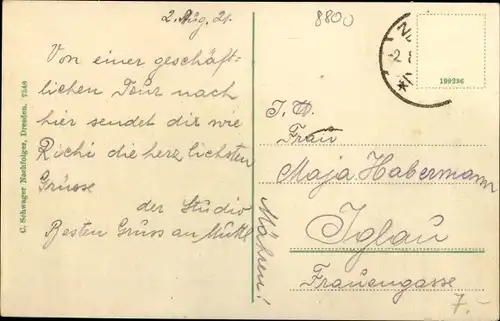 2. Aug. 21.
8800
Von einer geschäft-
lichen Tour nach
hier sendet dir wie
Richi die herzlichsten
Grüsse
der Studio
Besten Gruss an Muttl
C. Schwager Nachfolger, Dresden. 7548
199236
Frau
Maja Habermann
Iglau
Frauengasse
Mähren!
7.-